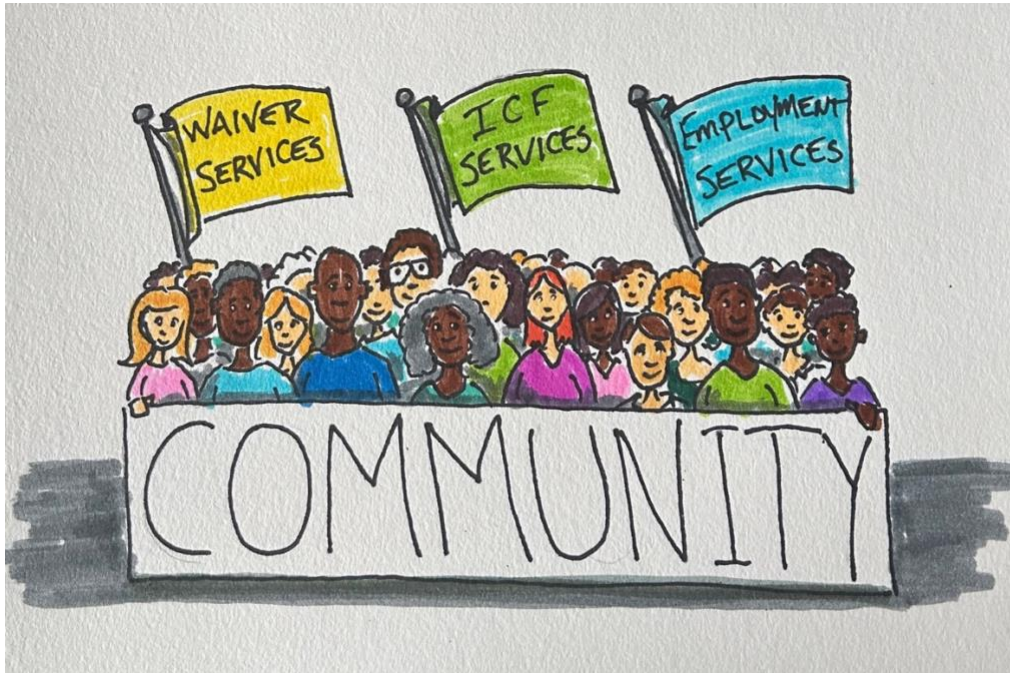 WAIVER
SERVICES
ICF
SERVICES
EMPLOYMENT
SERVICES
COMMUNITY